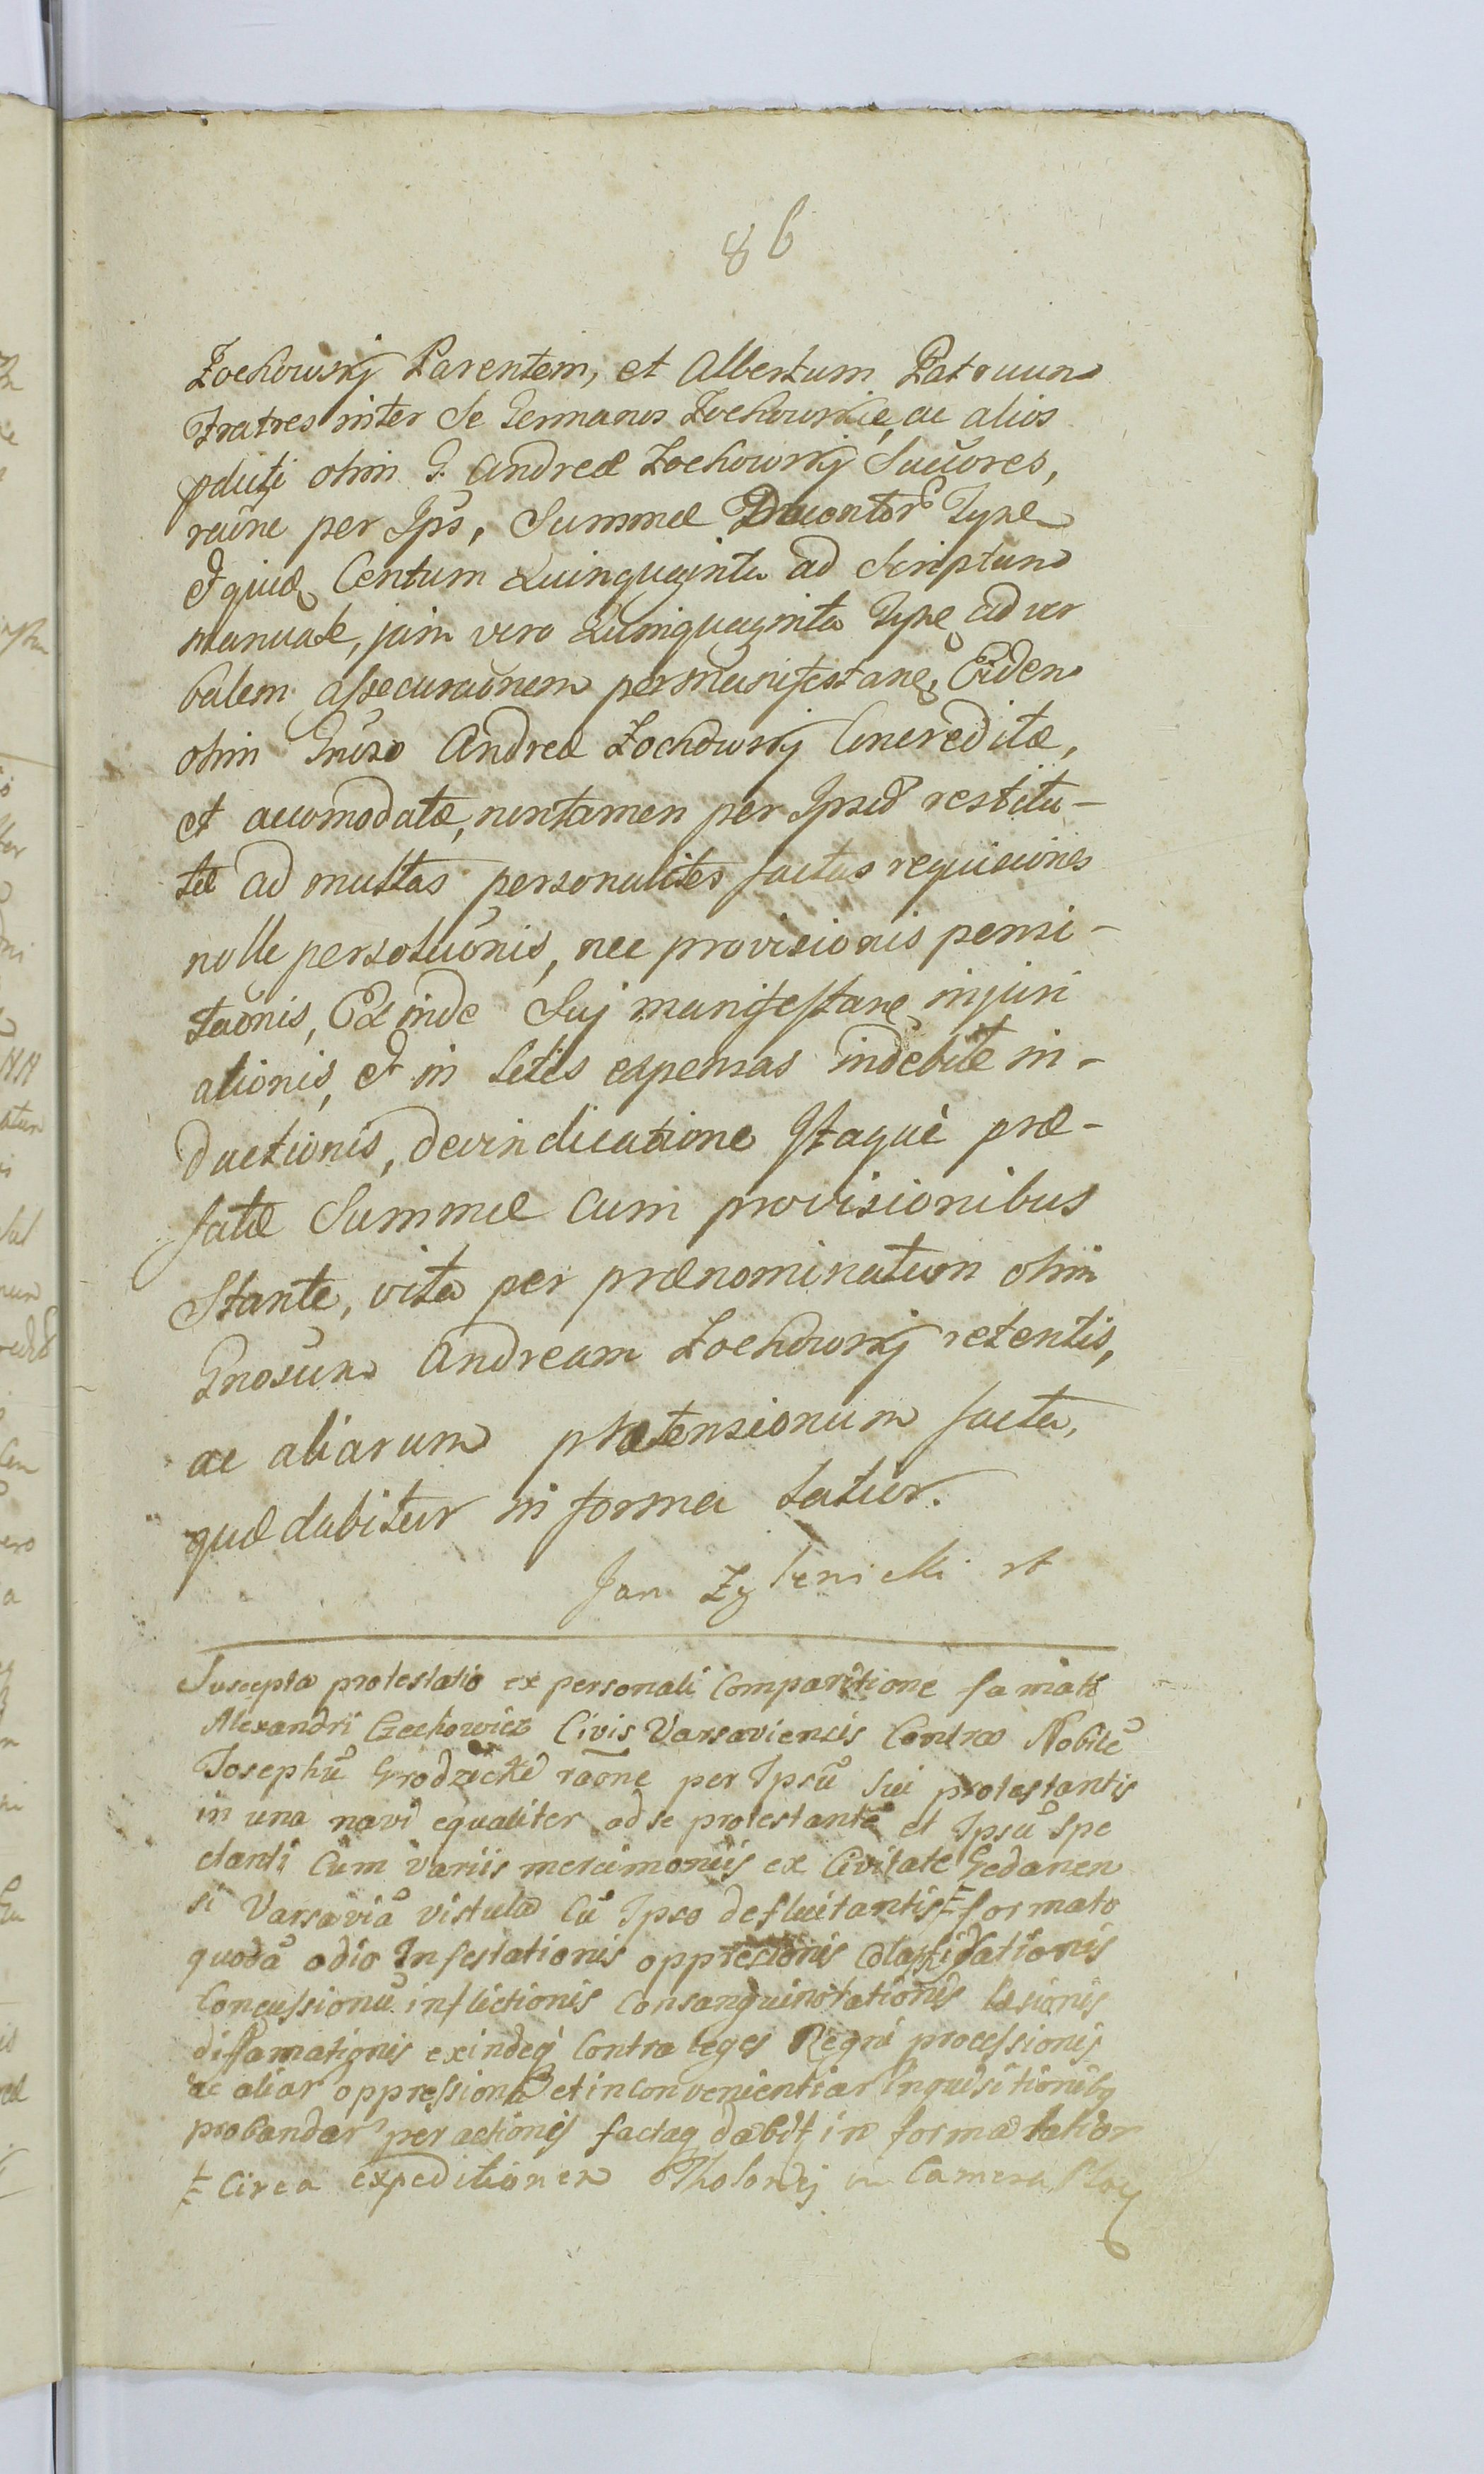 86
Zochowskij Parentem, et Albertum Patruum
Fratres inter Se Germanos Zochowskie, ac alios
pduti olim G. Andreæ Zochowskij Succores,
raune per Ips, Summæ Ducentor Type
Et quid Centum Quinquaginta ad Scriptum
manuale, jam vero Quinquaginta Type ad ver
balem assecuraonem per manifestane, Eidem
olim Gnoso Andreæ Zochowskij Concreditæ,
et accomodatæ, nontamen per Ipsũ restitu-
tæ ad multas personaliter factas requisiones
nolle persoluonis, nec provisionis pensi-
taonis, Et inde Suj manifestane injuri
ationis, et in Litis expensas indebitæ in-
ductionis, devindicatione Itaquè præ-
fatæ Summæ cum provisionibus
Stante, vita per prænominatum olim
Gnosum Andream Zochowskij retentis,
ac aliarum prætensionum facta,
quæ dabitur in forma latior.
Jan
Suscepta protestatio ex personali Comparitione famati
Alexandri Czechowicz Civis Varsaviensis Contra Nobilẽ
Josephũ Grodzickẽ raone per Ipsũ Sui protestantis
in una navi equaliter ad se protestantẽ et Ipsũ Spe
ctanti Cum variis mercimoniis ex Civitate Gedanen
si Varsaviã vistula Cũ Ipso defluitantis formato
quodã odio Infestationis oppressionis
Concussionũ inflictionis Consanguinotationis læsionis
diffamationis exindeq Contra leges Regni processionis
ac aliar oppressionũ et inconvenientiar Inquisitionibq
probandar per actionis factaq dabit in forma latior
Circa expeditionem in Camera